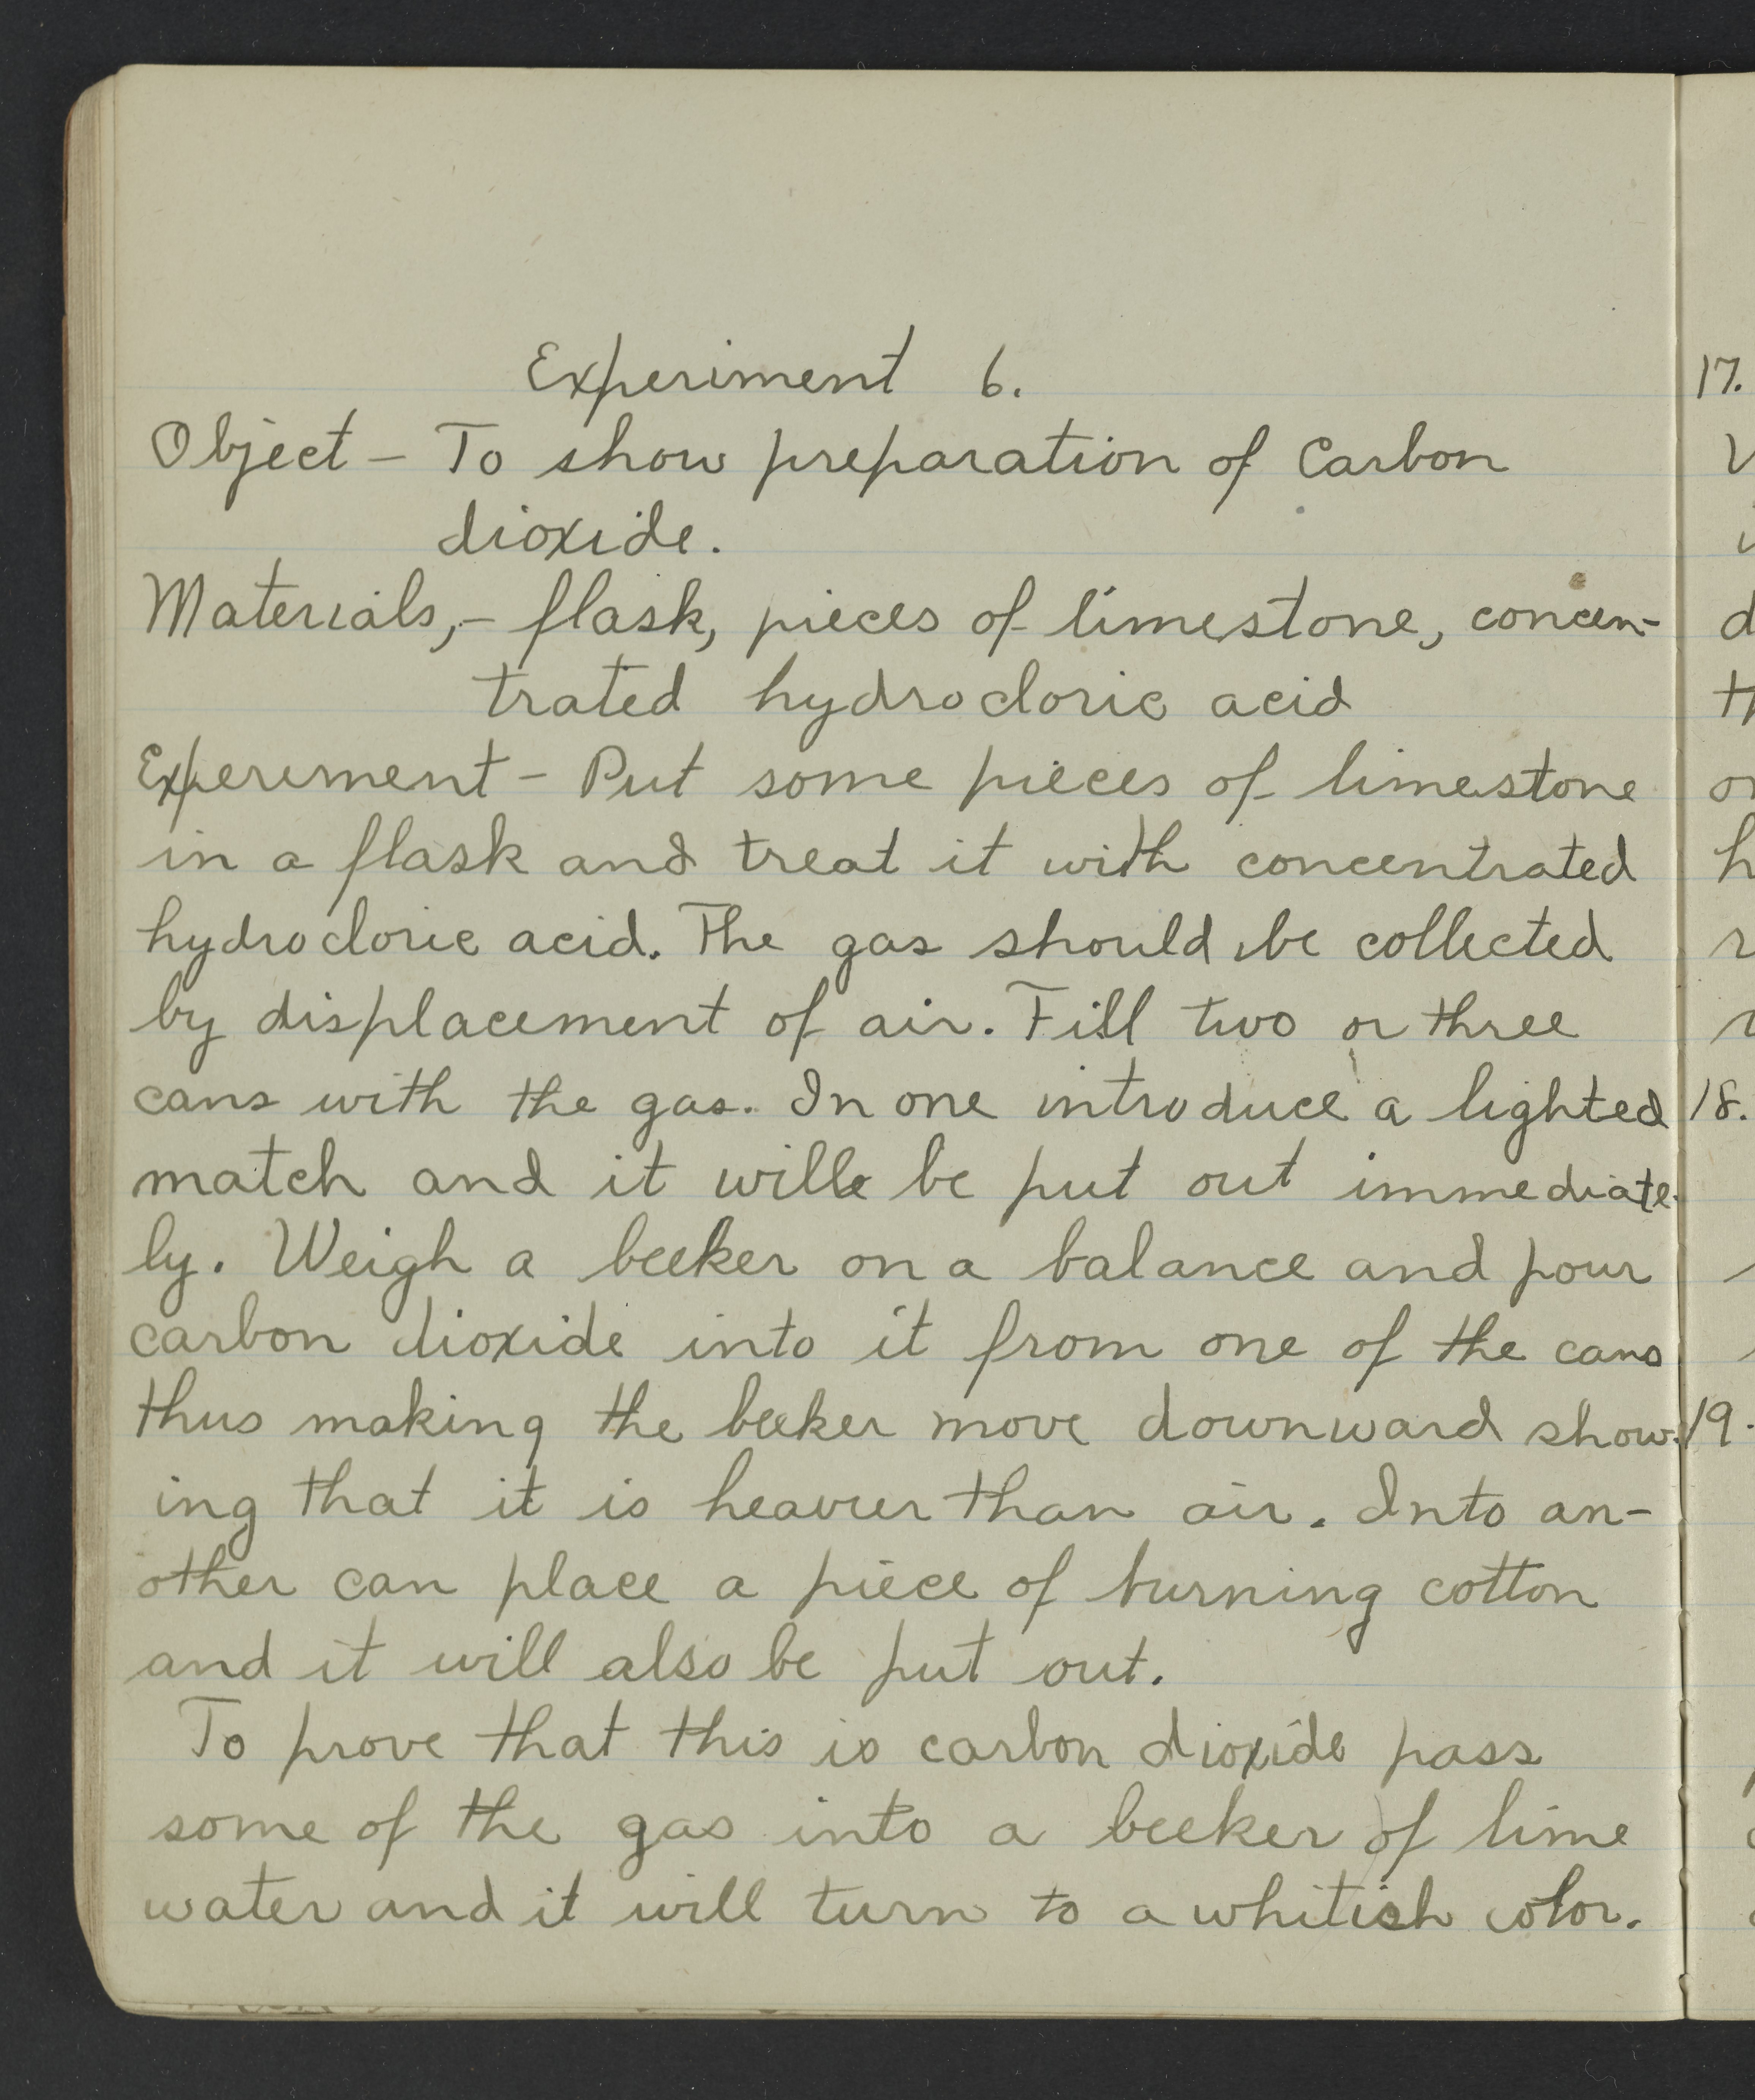 Experiment 6.
Object - To show preparation of Carbon
dioxide.
Materials,- flask, pieces of limestone, concen-
trated hydrocloric acid
Experement - Put some pieces of limestone
in a flask and treat it with concentrated
hydrocloric acid. The gas should be collected
by displacement of air. Fill two or three
cans with the gas. In one introduce a lighted
match and it will be put out immediate-
ly. Weigh a beeker on a balance and pour
carbon dioxide into it from one of the cans
thus making the beeker move downward show-
ing that it is heavier than air. Into an-
other can place a piece of burning cotton
and it will also be put out.
To prove that this is carbon dioxide pass
some of the gas into a beeker of lime
water and it will turn to a whitish color.
17.
18.
19.